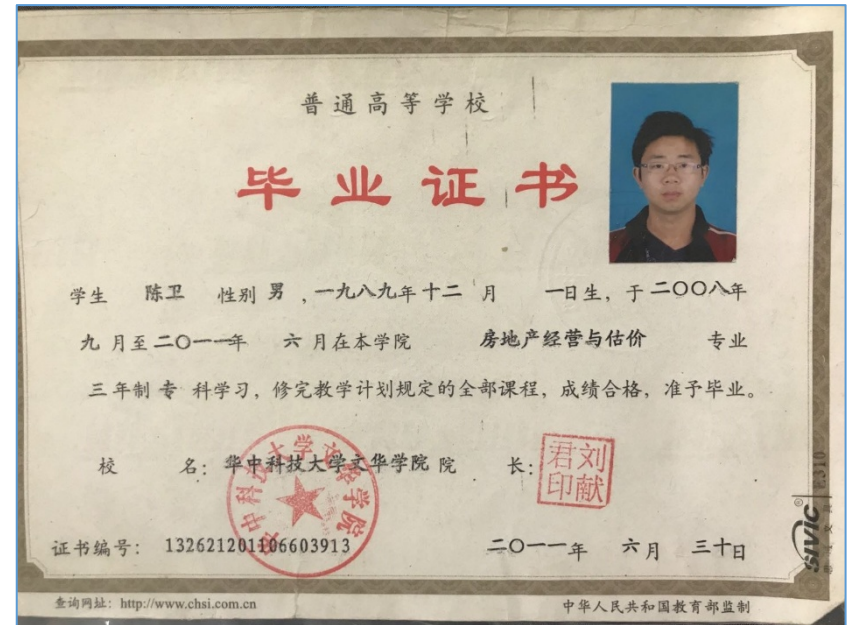 普通高等学校
毕业证书
学生 陈卫 性别 男 ，一九八九年十二 月 一日生，于二〇〇八年
九 月至二〇一一年 六 月在本学院 房地产经营与估价 专业
三 年制 专 科学习，修完教学计划规定的全部课程，成绩合格，准予毕业。
校 名：华中科技大学文华学院 院 长：
华中科技大学文华学院
刘献君印
证书编号： 132621201106603913 二〇一一年 六月 三十日
查询网址：http://www.chsi.com.cn 中华人民共和国教育部监制
SIVIC